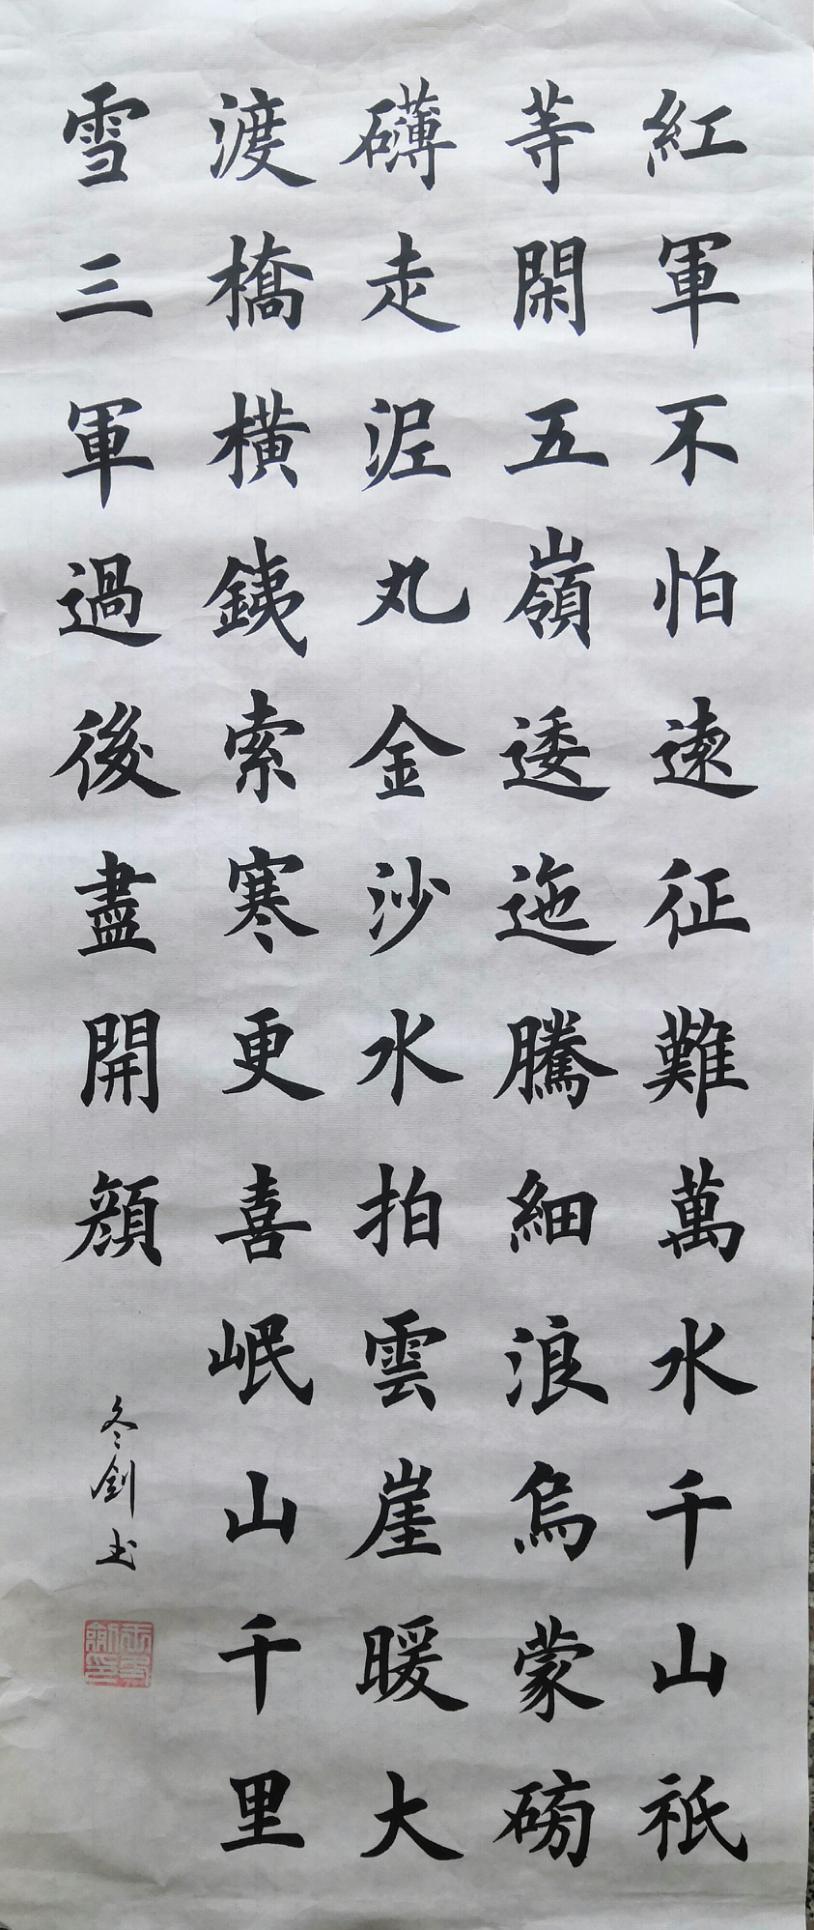 紅軍不怕遠征難萬水千山祇
等閑五嶺逶迤騰細浪烏蒙磅
礴走泥丸金沙水拍雲崖暖大
渡橋橫鐵索寒更喜岷山千里
雪三軍過後盡開顔
冬劍书